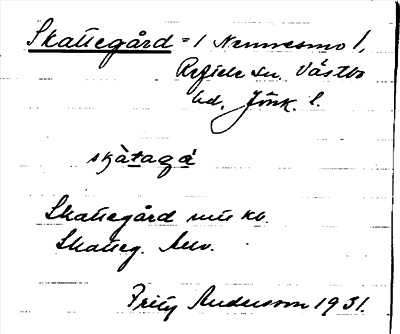 Skattegård = 1 Nennesmo 1,
Reftele sn. Västbo
hd. Jönk. l.
skàtagá
Skattegård kb.
Skatteg. Auv.
Fritz Andersson 1931.